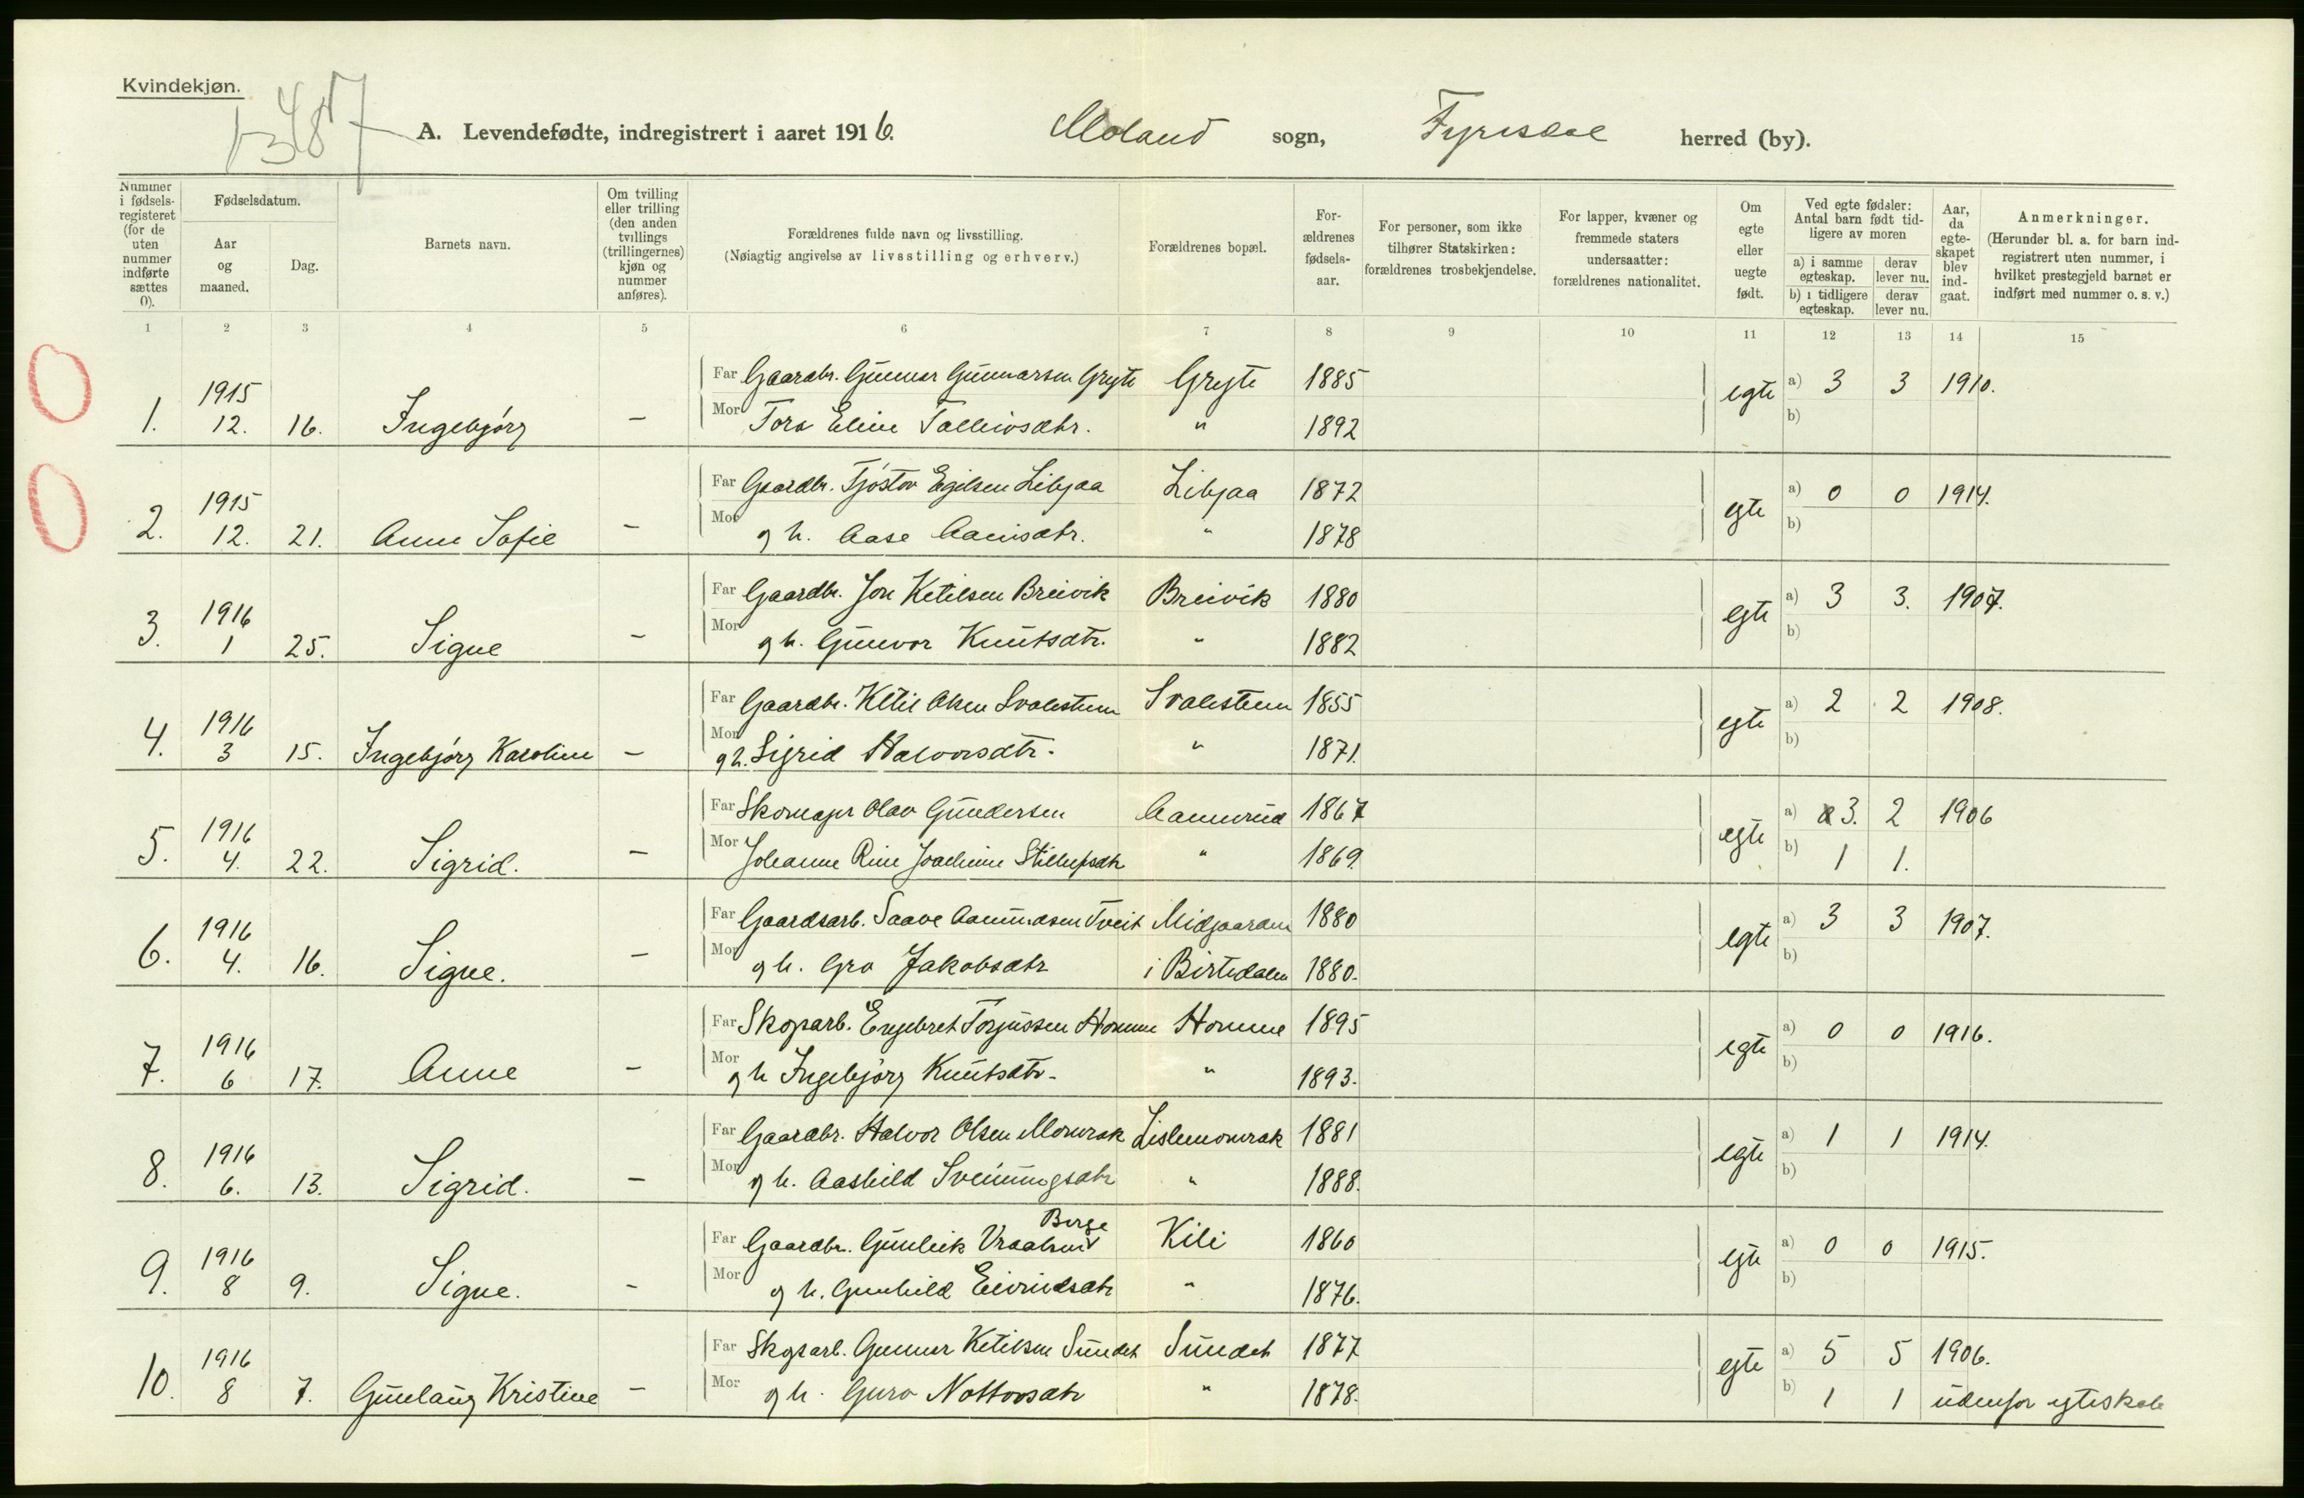 Kvindekjøn.
A. Levendefødte, indregistrert i aaret 1916. Moland sogn, Fyresdal herred (by).
Nummer i fødsels-registeret (for de uten nummer indførte sættes 0).
Fødselsdatum.
Aar og maaned.
Dag.
Barnets navn.
Om tvilling eller trilling (den anden tvillings (trillingernes) kjøn og nummer anføres).
Forældrenes fulde navn og livsstilling.
(Nøiagtig angivelse av livsstilling og erhverv.)
Forældrenes bopæl.
For-ældrenes fødsels-aar.
For personer, som ikke tilhører Statskirken: forældrenes trosbekjendelse.
For lapper, kvæner og fremmede staters undersaatter: forældrenes nationalitet.
Om egte eller uegte født.
Ved egte fødsler: Antal barn født tid-ligere av moren
a) i samme egteskap. derav lever nu.
b) i tidligere egteskap. derav lever nu.
Aar, da egte-skapet blev ind-gaat.
Anmerkninger.
(Herunder bl. a. for barn ind-registrert uten nummer, i hvilket prestegjeld barnet er indført med nummer o. s. v.)
1 2 3 4 5 6 7 8 9 10 11 12 13 14 15
1915 Far Gaardbr. Gunnar Gunnarsen Gryte Gryte 1885 egte a) 3 3 1910.
1. 12. 16. Ingebjórg – Mor Tora Eline Talleivsdtr. " 1892 b)
1915 Far Gaardbr. Tjóstov Egilsen Libjaa Libjaa 1872 egte a) 0 0 1914.
2. 12. 21. Anne Sofie – Mor g h. Aase Aanisdtr. " 1878 b)
1916 Far Gaardbr. Jon Ketilsen Breivik Breivik 1880 egte a) 3 3. 1907.
3. 1 25. Signe – Mor g h. Gunvor Knutsdtr. " 1882 b)
1916 Far Gaardbr. Ketil Olsen Svalestuen Svalestuen 1855 egte a) 2 2 1908.
4. 3 15. Ingebjórg Karoline – Mor g h. Sigrid Halvorsdtr. " 1871. b)
1916 Far Skomager Olav Gundersen Aamlid 1867 egte a) 3. 2 1906
5. 4. 22. Sigrid. – Mor Johanne Rine Joachime " 1869. b) 1 1.
1916 Far Gaardsarb. Saave Aamundsen Tveit Midgaarden 1880 egte a) 3 3 1907.
6. 4. 16. Signe. – Mor g h. Gro Jakobsdtr i Birtedalen 1880. b)
1916 Far Skogsarb. Engebret Torjussen Homme Homme 1895 egte a) 0 0 1916.
7. 6 17. Anne – Mor g h Ingebjórg Knutsdtr. " 1893. b)
1916 Far Gaardbr. Halvor Olsen Momrak Lislemomrak 1881 egte a) 1 1 1914.
8. 6. 13. Sigrid. – Mor g h. Aashild Sveinungsdtr " 1888. b)
Berge
1916 Far Gaardbr. Gunleik Vraalsen Kili 1860 egte a) 0 0 1915.
9. 8 9. Signe. – Mor g h. Gunhild Eivindsdtr " 1876. b)
1916 Far Skogsarb. Gunnar Ketilsen Sundet Sundet 1877 egte a) 5 5 1906.
10. 8 7. Gunlaug Kristine – Mor g h. Guro Nottovsdtr " 1878. b) 1 1 udenfor egteskab